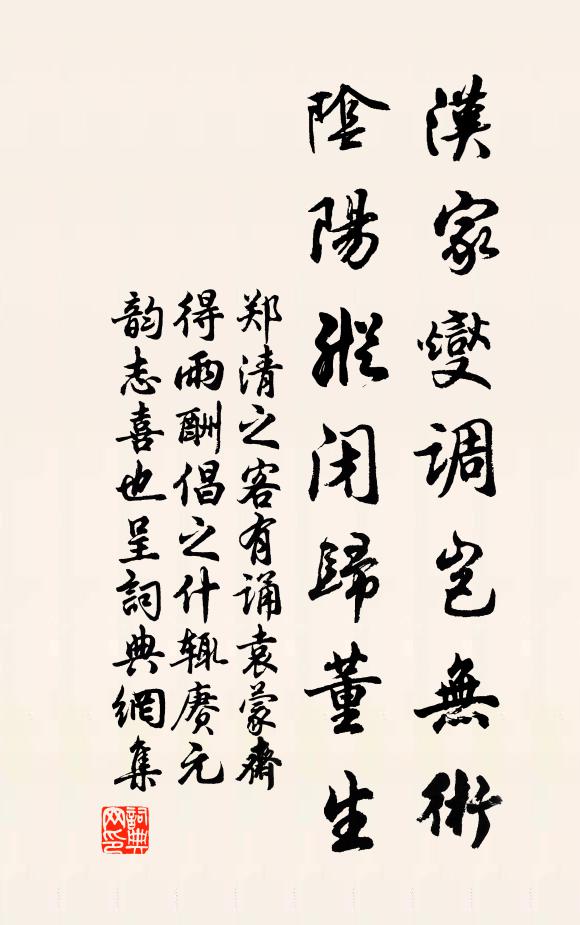 漢家燮調豈無術
陰陽縱閉歸董生
郑清之客有诵袁蒙齋
得雨酬倡之什辄赓元
韵志喜也呈詞典網集
詞典網印